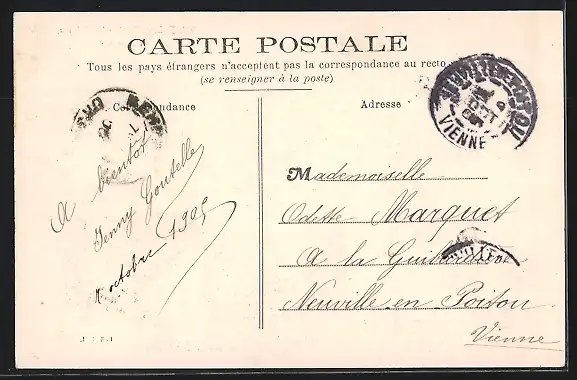 CARTE POSTALE
Tous les pays étrangers n'acceptent pas la correspondance au recto
(se renseigner à la poste)
Correspondance
Adresse
VIENNE
A bientôt
Jenny
octobre 1905
Mademoiselle
Odette Marquet
A la
Neuville en Poitou
Vienne